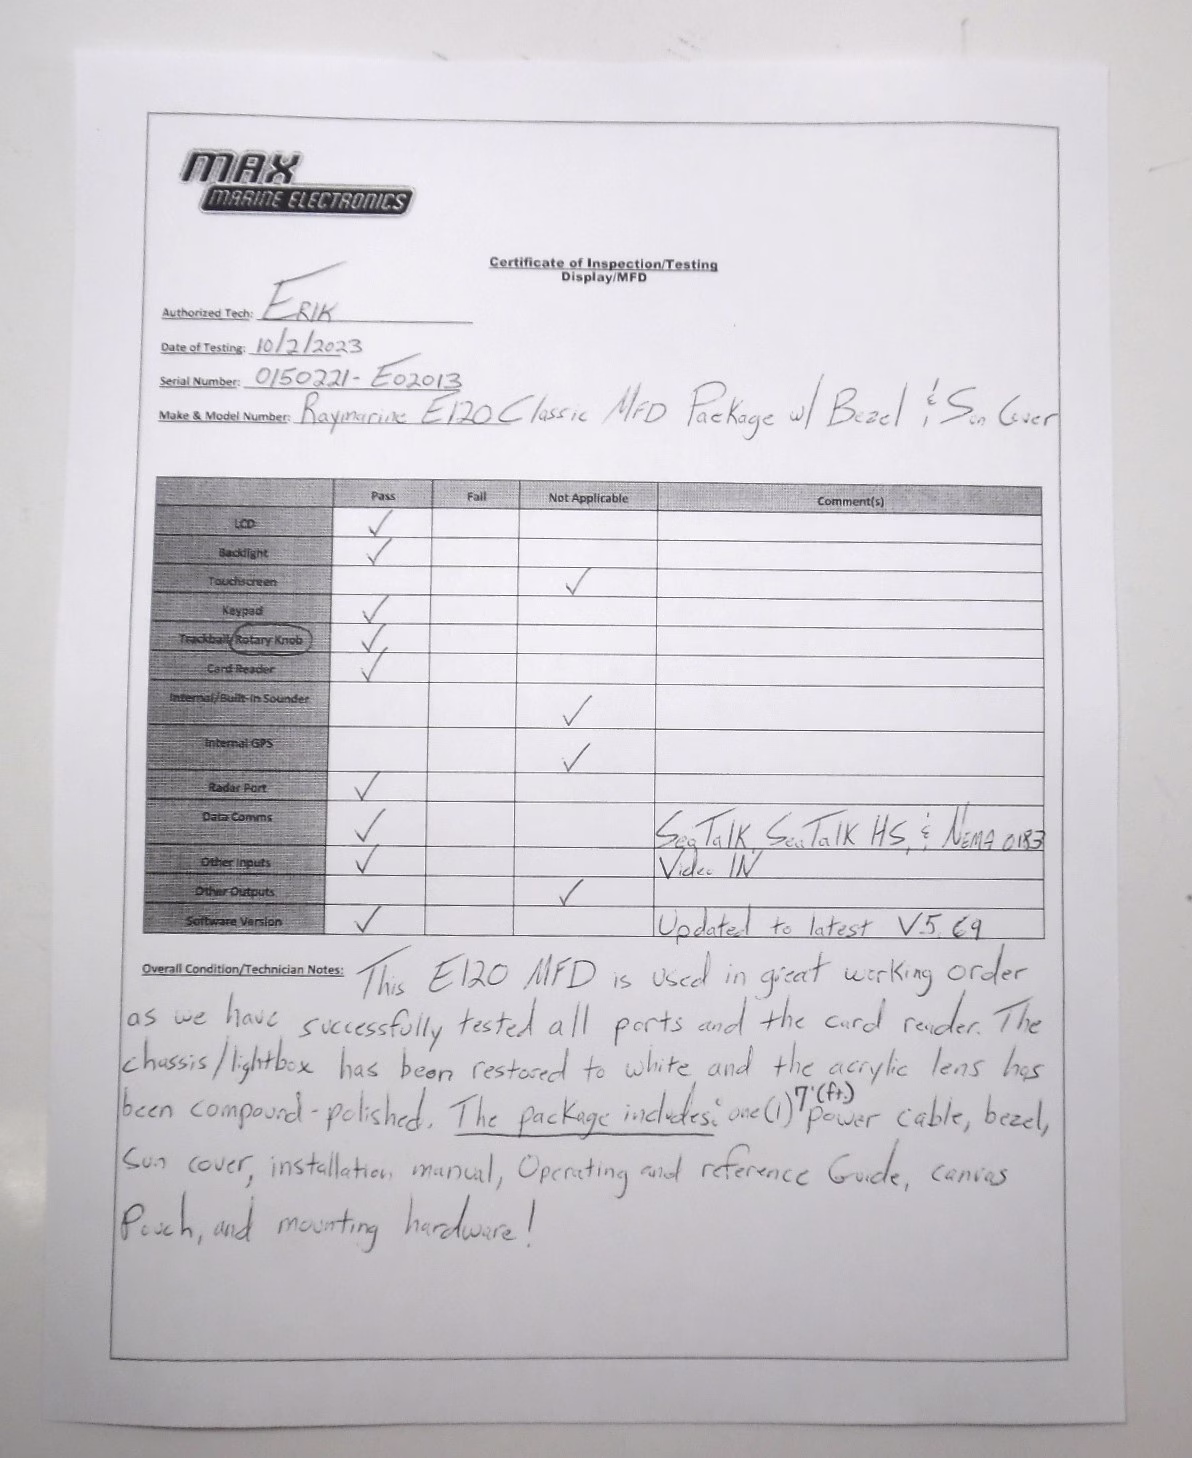 MAX
MARINE ELECTRONICS
Certificate of Inspection/Testing
Display/MFD
Authorized Tech: ERIK
Date of Testing: 10/2/2023
Serial Number: 0150221-E02013
Make & Model Number: Raymarine E120 Classic MFD Package w/ Bezel & Sun Cover
Pass Fail Not Applicable Comment(s)
LCD ✓
Backlight ✓
Touchscreen ✓
Keypad ✓
Trackball/Rotary Knob ✓
Card Reader ✓
Internal/Built-In Sounder ✓
Internal GPS ✓
Radar Port ✓
Data Comms ✓ SeaTalk, SeaTalk HS, & NEMA 0183
Other Inputs ✓ Video IN
Other Outputs ✓
Software Version ✓ Updated to latest V5.69
Overall Condition/Technician Notes: This E120 MFD is used in great working order
as we have successfully tested all ports and the card reader. The
chassis/lightbox has been restored to white and the acrylic lens has
been compound-polished. The package includes: one(1) 7'(ft.) power cable, bezel,
Sun cover, installation manual, Operating and reference Guide, canvas
Pouch, and mounting hardware!